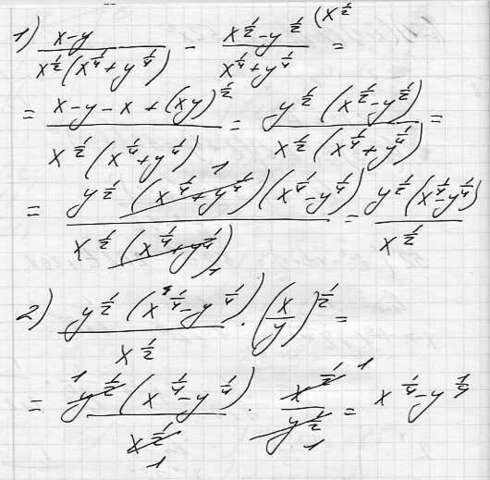 1) (x-y)/(x^(1/2)(x^(1/4)+y^(1/4))) - (x^(1/2)-y^(1/2))/(x^(1/4)+y^(1/4)) (x^(1/2) =
= (x-y-x+(xy)^(1/2))/(x^(1/2)(x^(1/4)+y^(1/4))) = (y^(1/2)(x^(1/2)-y^(1/2)))/(x^(1/2)(x^(1/4)+y^(1/4))) =
= (y^(1/2)(x^(1/4)+y^(1/4))(x^(1/4)-y^(1/4)))/(x^(1/2)(x^(1/4)+y^(1/4))) = (y^(1/2)(x^(1/4)-y^(1/4)))/x^(1/2)
2) (y^(1/2)(x^(1/4)-y^(1/4)))/x^(1/2) · (x/y)^(1/2) =
= (y^(1/2)(x^(1/4)-y^(1/4)))/x^(1/2) · x^(1/2)/y^(1/2) = x^(1/4)-y^(1/4)